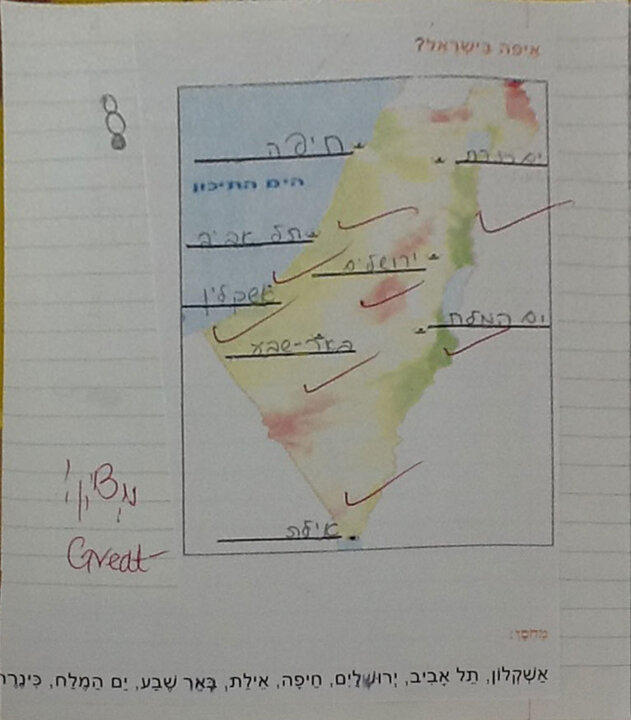 איפה בישראל?
חיפה
ים כנרת
הים התיכון
תל אביב
ירושלים
אשקלון
ים המלח
באר-שבע
אילת
Great
מחסן:
אַשְׁקְלוֹן, תֵּל אָבִיב, יְרוּשָׁלַיִם, חֵיפָה, אֵילַת, בְּאֵר שֶׁבַע, יַם הַמֶּלַח, כִּינֶרֶת